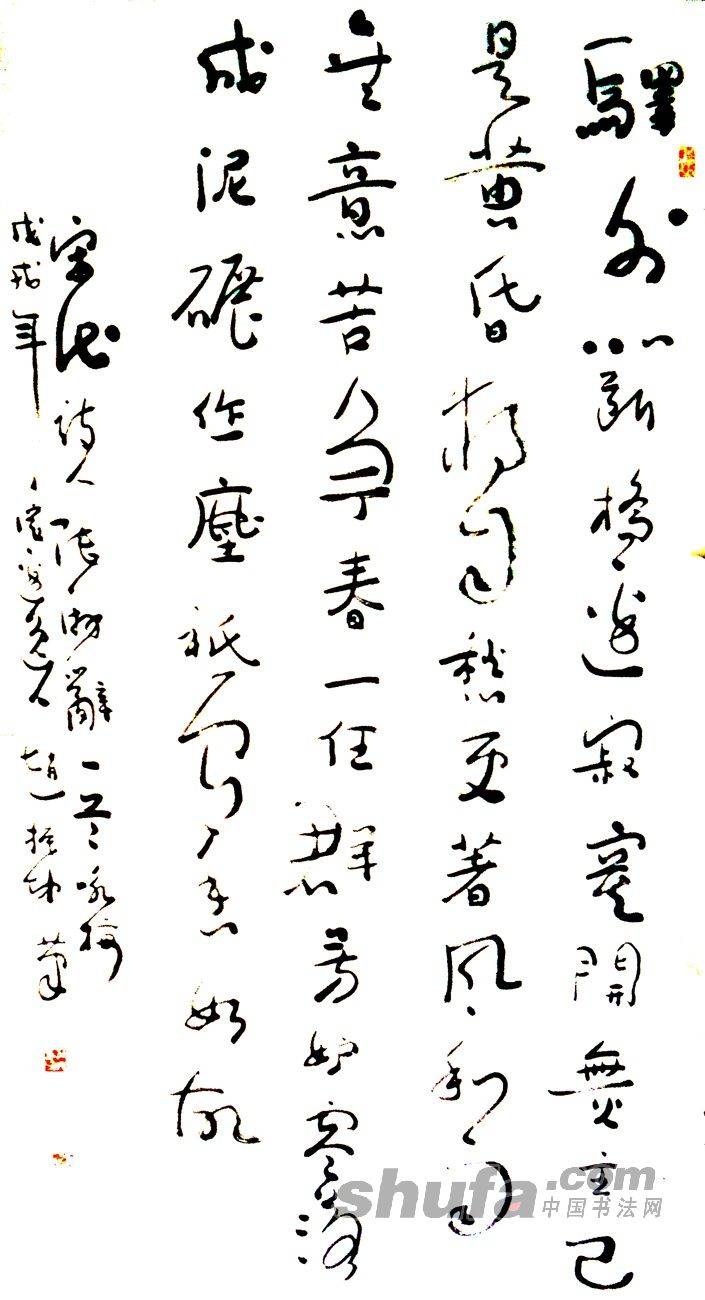 驛外斷橋邊寂寞開無主已
是黃昏獨自愁更著風和雨
無意苦爭春一任群芳妒零落
成泥碾作塵祇有香如故
宋代詩人陸游辭一首咏梅
戊戌年
shufa.com
中国书法网